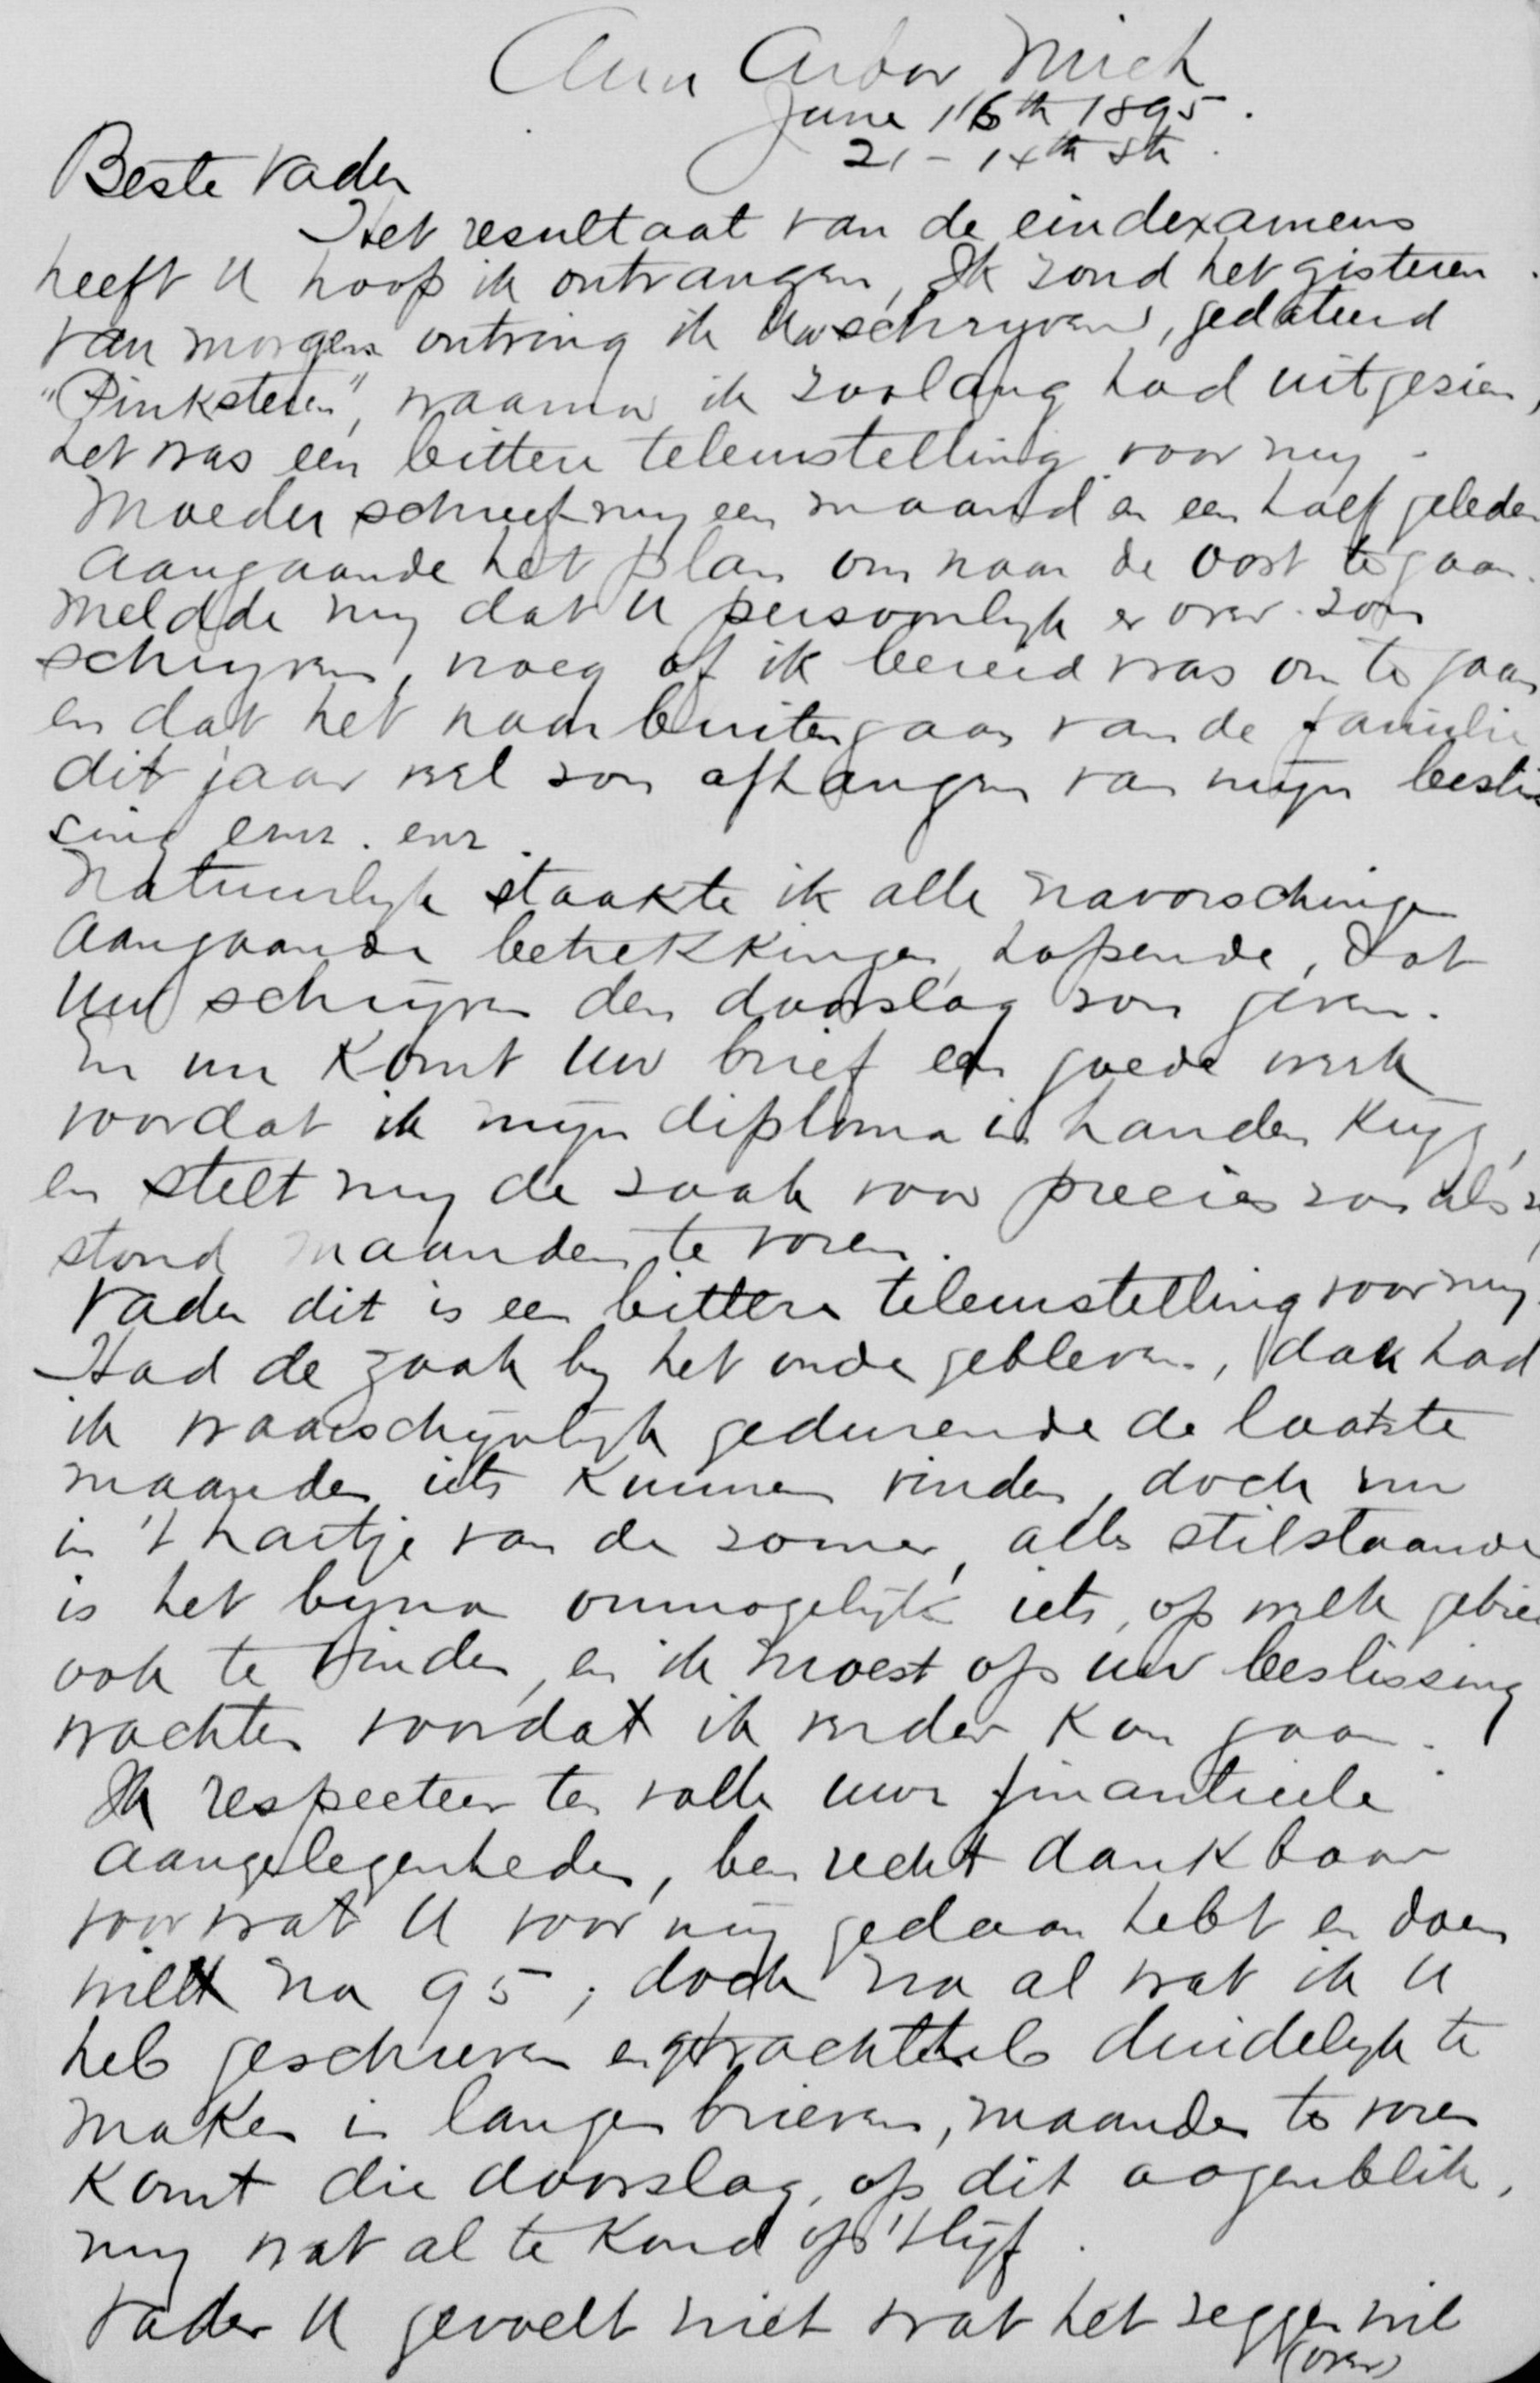 Ann Arbor Mich
June 16th 1895.
21 - 14th Str.
Beste Vader
Het resultaat van de eindexamens
heeft U hoop ik ontvangen, Ik zond het gisteren.
Van morgen ontving ik Uw schryven, gedateerd
"Pinksteren", waarna ik zoolang had uitgezien,
het was een bittere teleurstelling voor my.
Moeder schreef my een maand en een half geleden
aangaande het plan om naar de Oost te gaan.
Meldde my dat U persoonlyk er over zou
schryven, vroeg of ik bereid was om te gaan
en dat het naar buiten gaan van de familie
dit jaar wel zou afhangen van myn beslis
sing enz. enz.
Natuurlyk staakte ik alle navorschingen
aangaande betrekkingen, hopende, dat
Uw schryven den doorslag zou geven.
En nu komt Uw brief een goede week
voordat ik myn diploma in handen kryg,
en stelt my de zaak voor precies zoo als z
stond maanden te voren.
Vader dit is een bittere teleurstelling voor my.
Had de zaak by het oude gebleven, dan had
ik waarschynlyk gedurende de laatste
maanden iets kunnen vinden, doch nu
in 't hartje van de zomer, alles stilstaande
is het byna onmogelyk iets, op welk gebied
ook te vinden, en ik moest op uw beslissing
wachten voordat ik verder kon gaan.
Ik respecteer ten volle uwe finantieele
aangelegenheden, ben recht dankbaar
voor wat U voor my gedaan hebt en doen
wilt na 95; doch na al wat ik U
heb geschreven en getracht heb duidelyk te
maken in lange brieven, maanden te voren
komt die doorslag, op dit oogenblik,
my wat al te koud op 't lyf.
Vader U gevoelt niet wat het zeggen wil
(over)